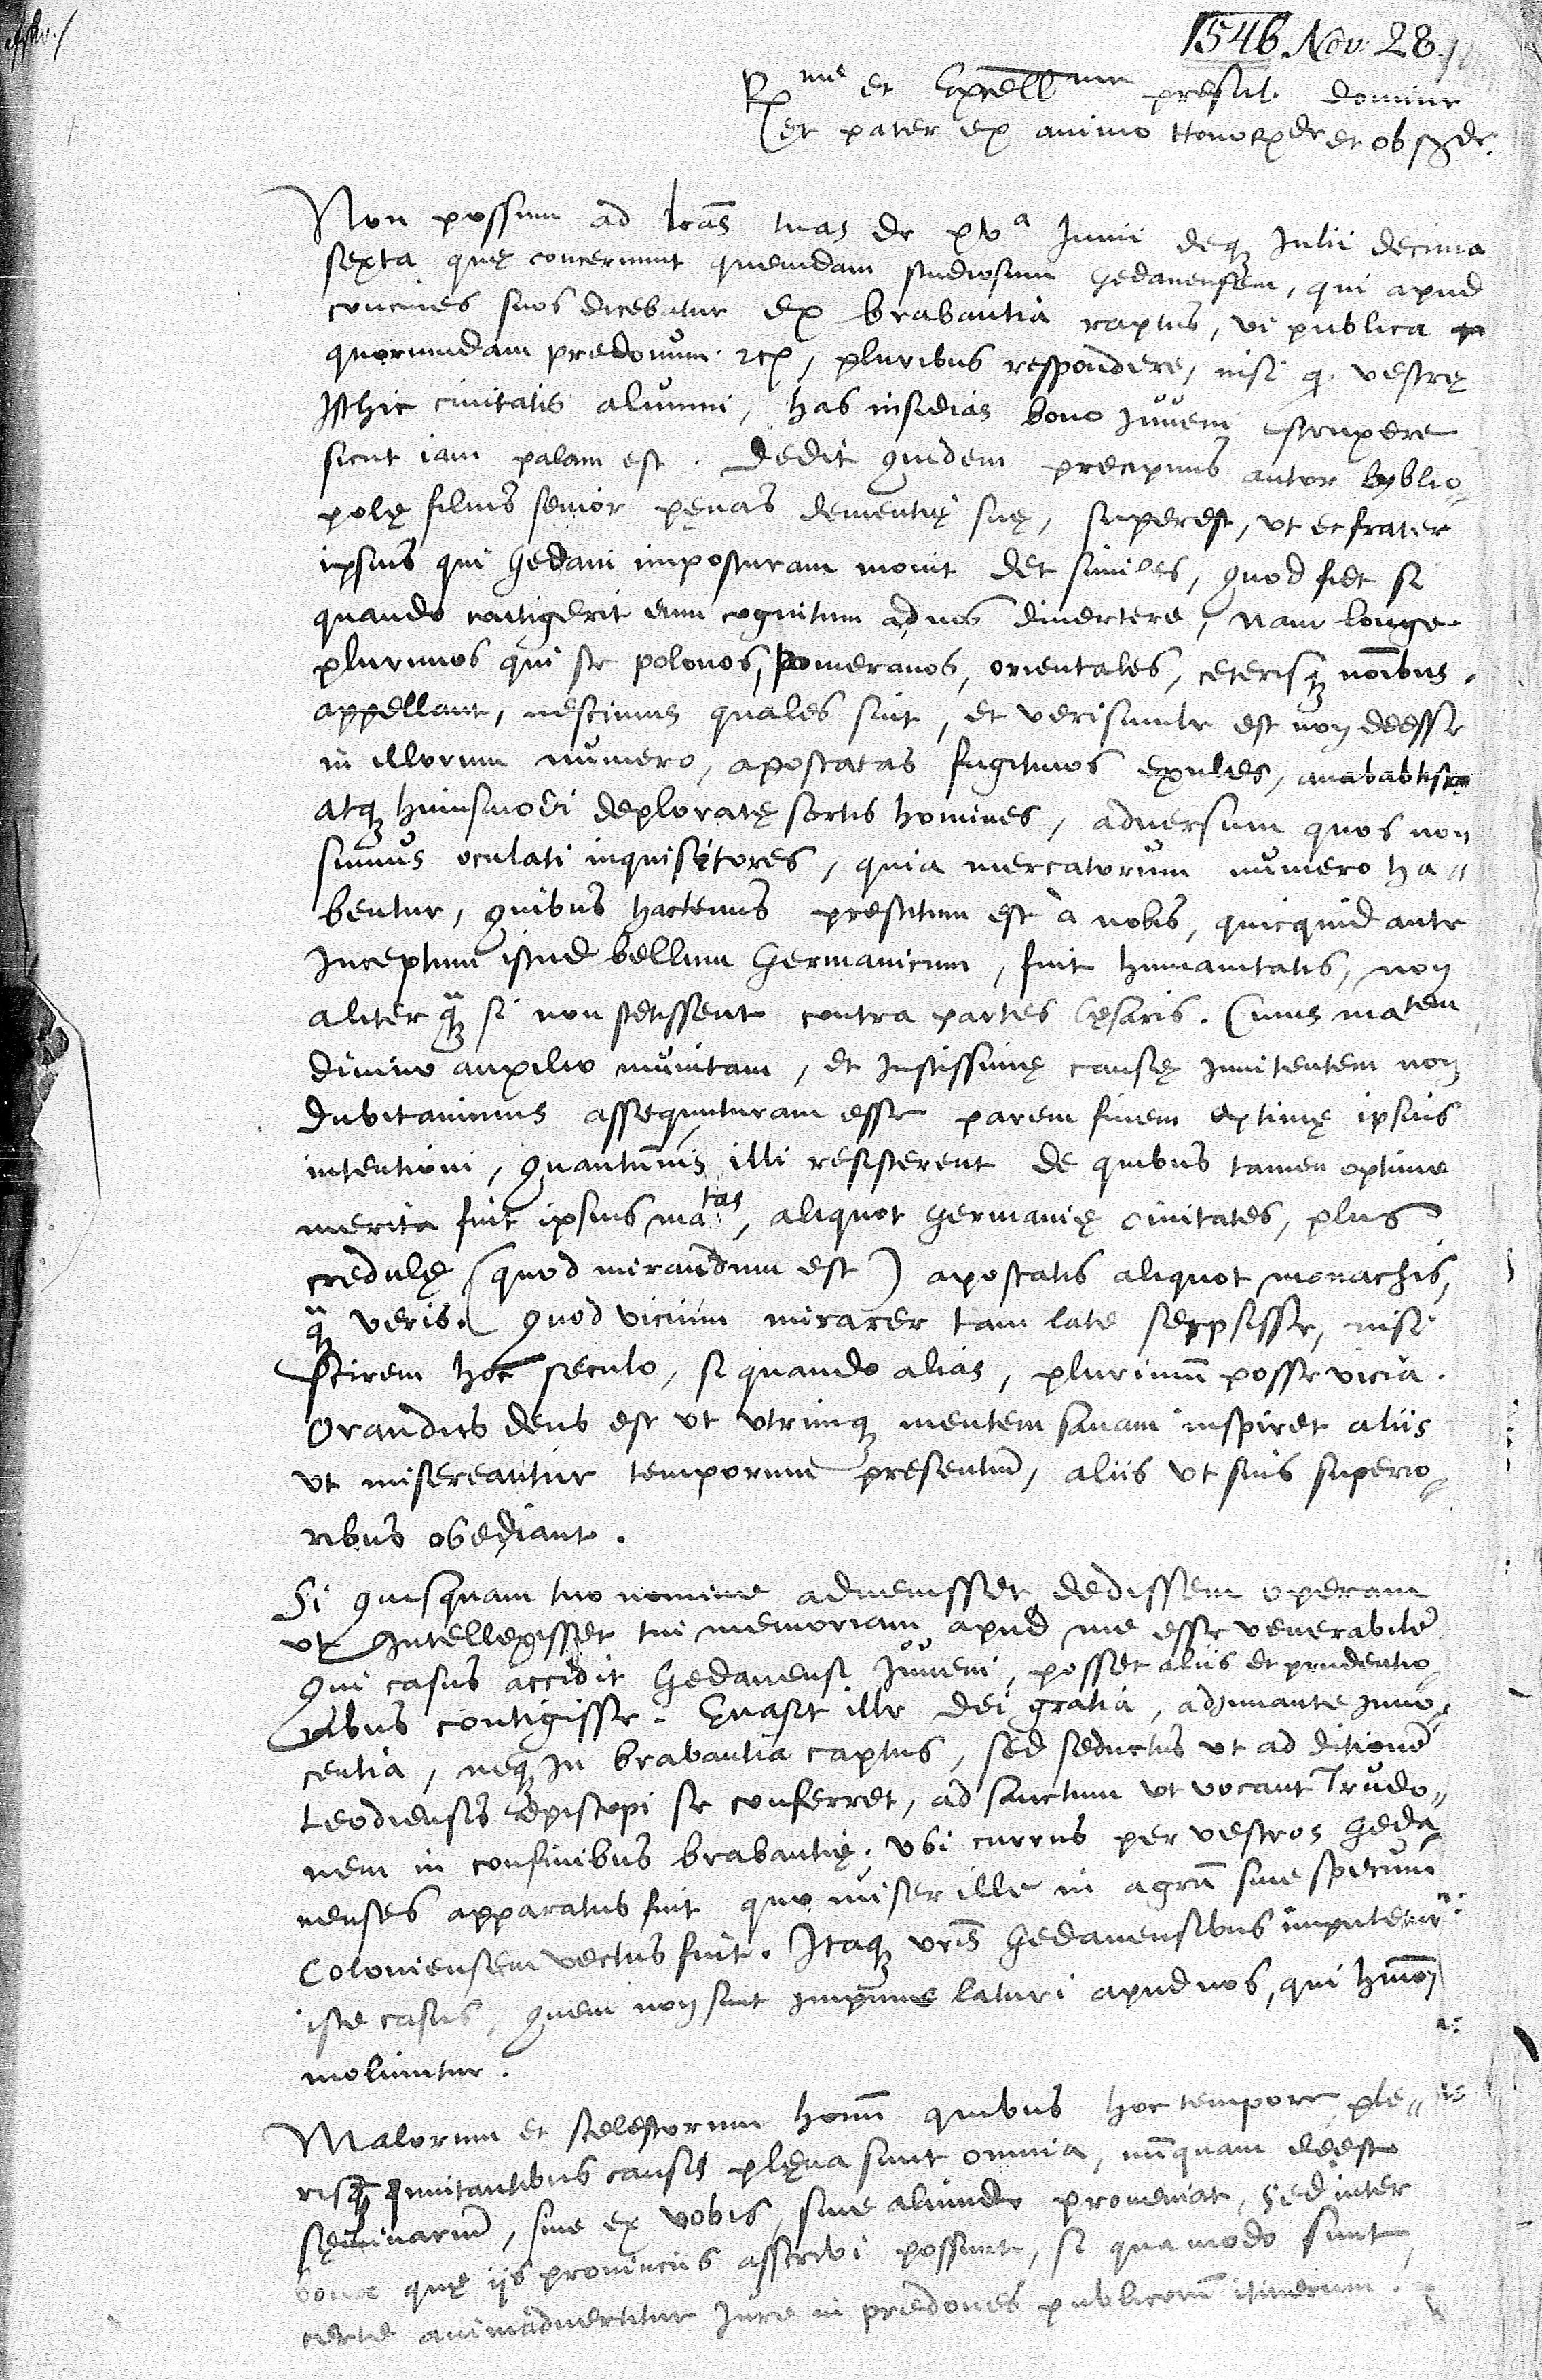 1546 Nov. 28.
Rme et Excellme presul domine
et pater ex animo honorde et obsde.
Non possum ad lras tuas de xva Junii deq Julii decima
sexta quę concernunt quemdam studiosum Gedanensem, qui apud
concives suos dicebatur ex brabantia raptus, vi publica
quorumdam predonum etc, pluribus respondere, nisi q vestrę
Isthic civitatis alumni, has insidias bono Juveni struxere
sicut iam palam est. Dedit quidem precipuus autor byblio
polę filius senior pęnas dementię suę, superest, ut et frater
ipsius qui Gedani imposturam movit det similes, quod fiet si
quando contigerit eum cognitum ad nos divertere, nam longe
plurimos qui se polonos, pomeranos, orientales, ceterisq noibus
appellant, nescimus quales sint, et verisimile est non deesse
in illorum numero, apostatas fugitivos exules, anababtistas
atq huiusmodi deploratę sortis homines, adversum quos non
sumus oculati inquisitores, quia mercatorum numero ha"
bentur, quibus hactenus prestitum est a nobis, quicquid ante
Inceptum istud bellum Germanicum, fuit humanitatis, non
aliter q si non stetissent contra partes Cęsaris. Cuius matem
divino auxilio munitam, et Justissimę causę innitentem non
dubitavimus assequuturam esse parem finem optimę ipsius
intentioni, quantumvis illi resisterent de quibus tamen optime
merita fuit ipsius matas, aliquot Germanię civitates, plus
credulę (quod mirandum est) apostatis aliquot monachis,
q veris. Quod vicium mirarer tam late serpsisse, nisi
scirem hoc seculo, si quando alias, plurimum posse vicia.
Orandus deus est ut utrimq mentem sanam inspiret aliis
ut misereantur temporum presentium, aliis ut suis superio
ribus obediant.
Si quisquam tuo nomine advenisset dedissem operam
ut Intellegisset tui memoriam apud me esse venerabilem
Qui casus accidit Gedanensi Juveni, posset aliis et prudentio
ribus contigisse. Evasit ille dei gratia, adiuvante inno
centia, neq In brabantia captus, sed seductus ut ad ditionem
Leodiensis Episcopi se conferret, ad sanctum ut vocant Trudo"
nem in confinibus brabantię; ubi currus per vestros Geda
nenses apparatus fuit quo miser ille in agrum sive
Coloniensem vectus fuit. Itaq vris Gedanensibus imputetur
iste casus, quem non sunt impune laturi apud nos, qui hmoi
moliuntur.
Malorum et scelestorum hoium quibus hoc tempore ple"
risq causis plęna sunt omnia, nunquam deest
sęminarium, sive ex vobis, sive aliunde proveniat, sed inter
bona quę iis provinciis asscribi possunt, si qua modo sunt,
certe animadvertitur Jure in predones publicorum itinerum.